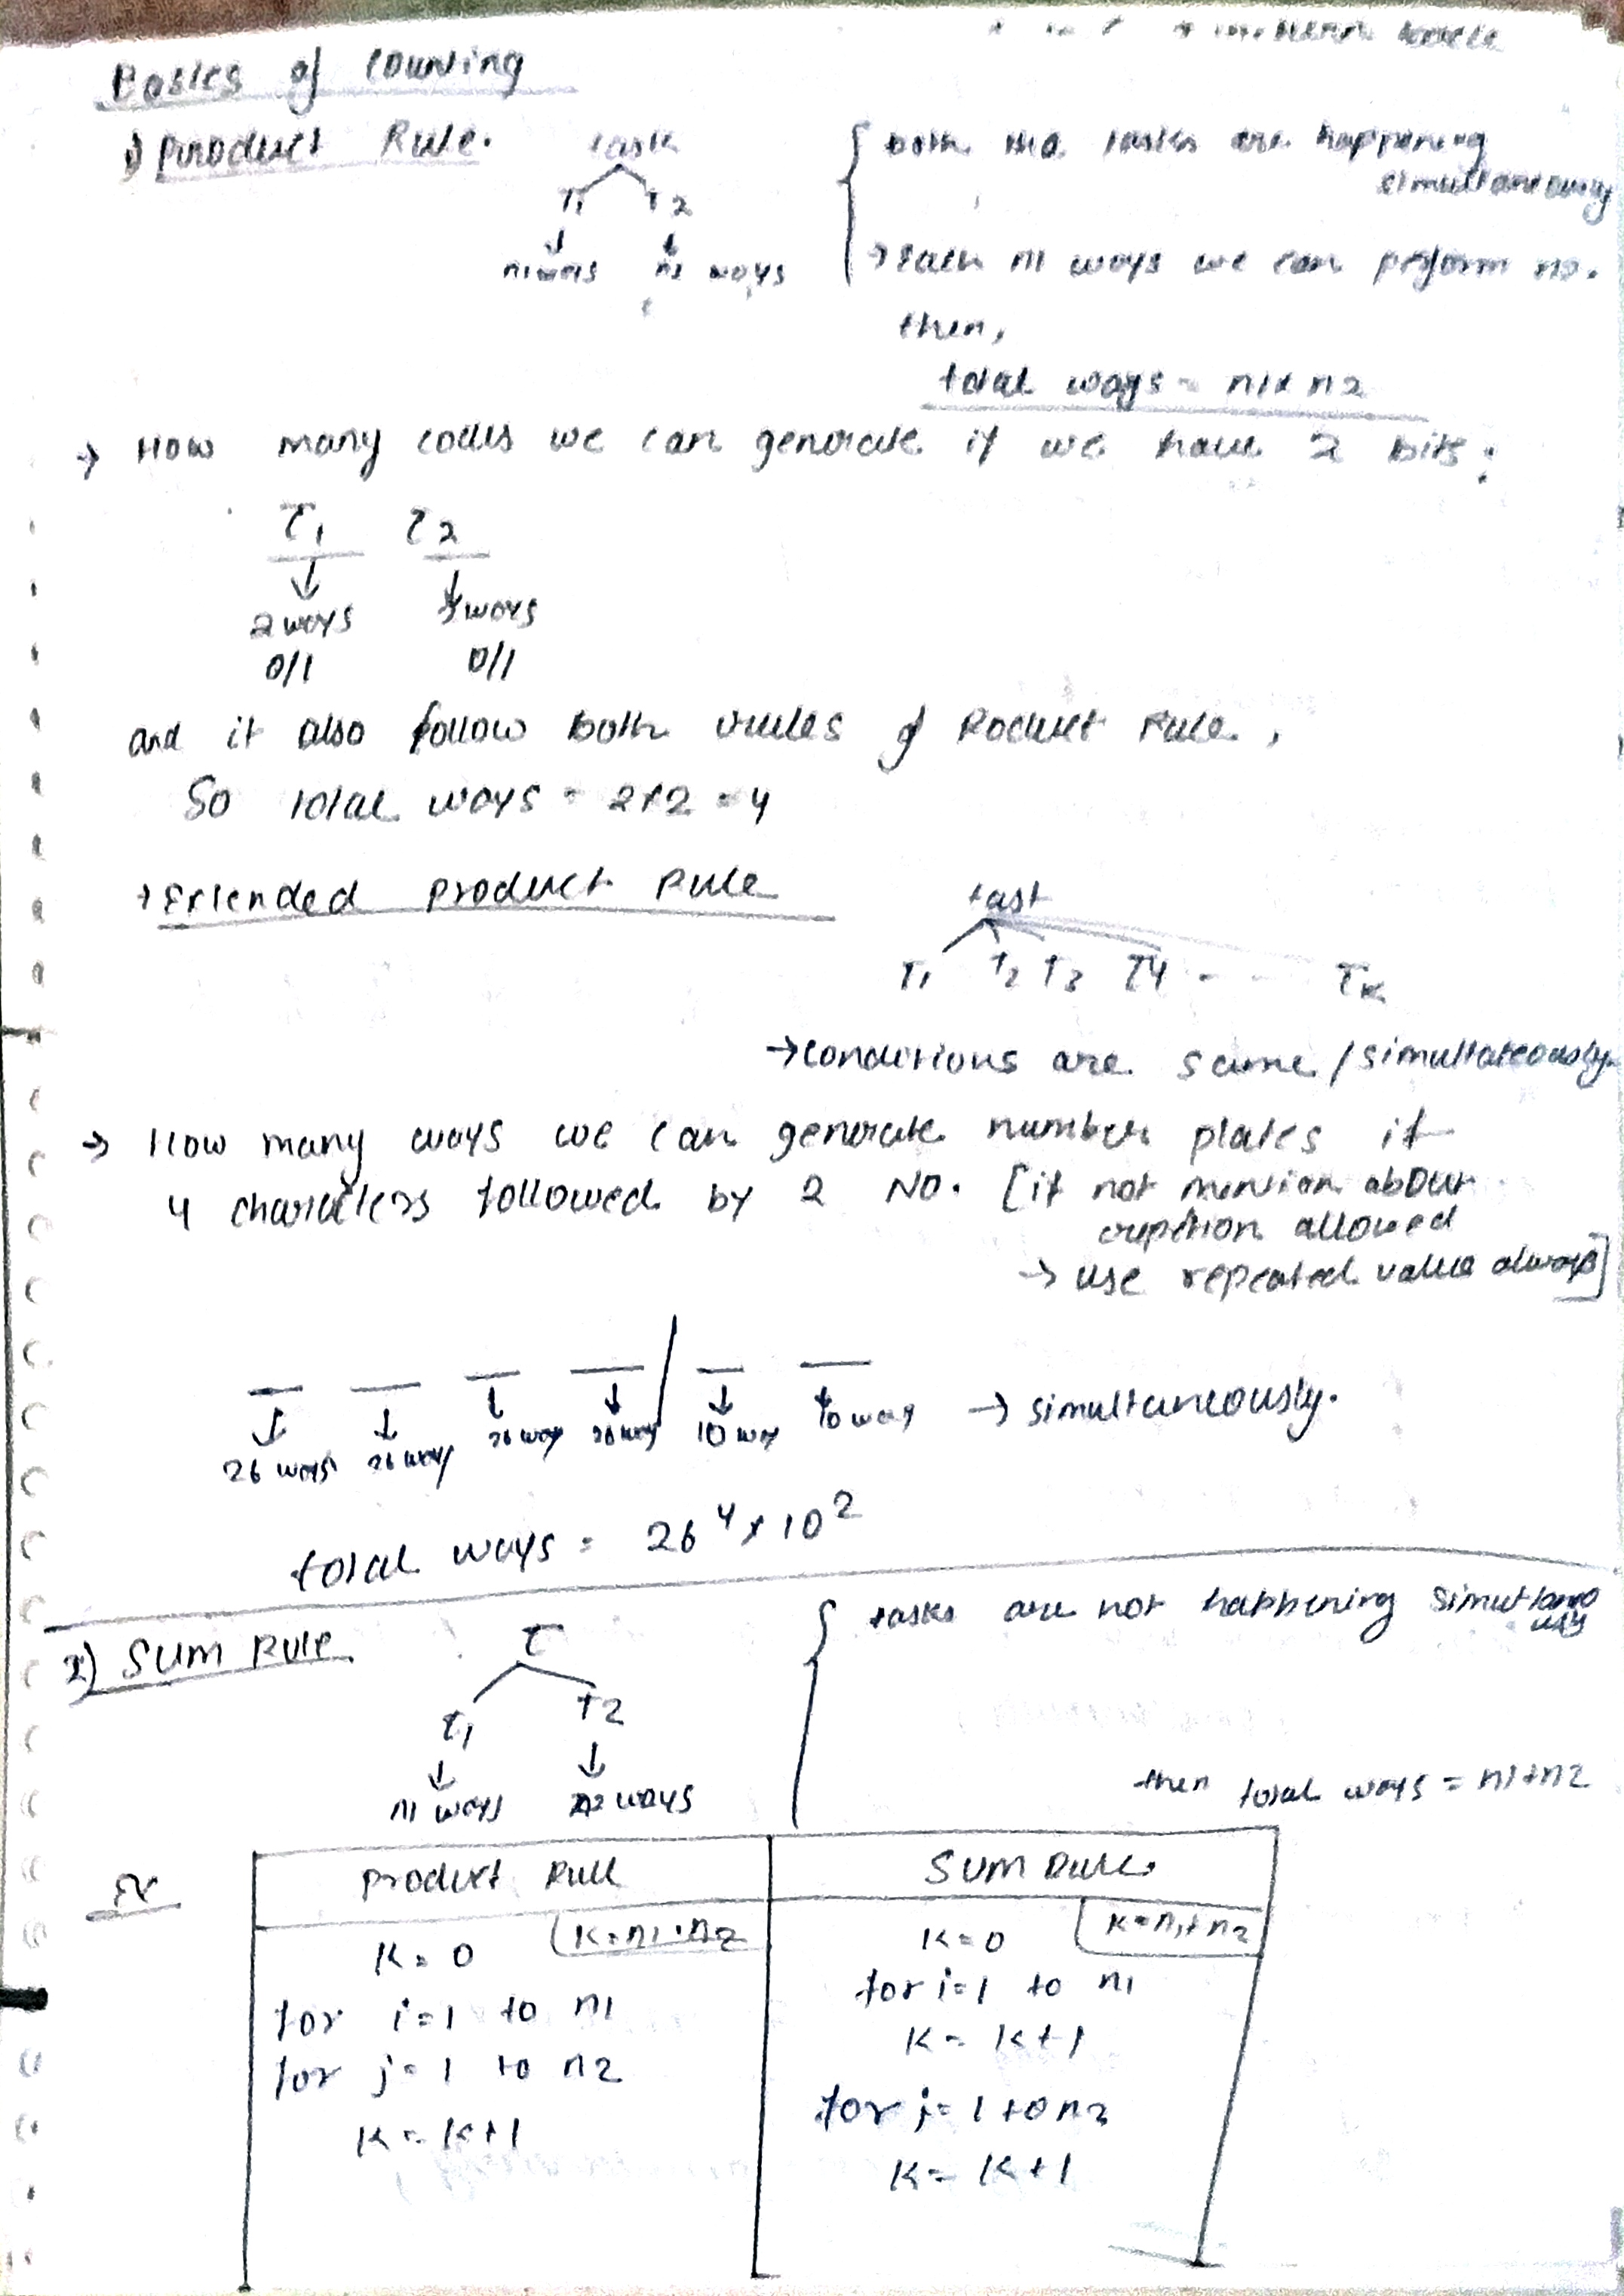 Basics of counting
1) Product Rule.
task
T1 T2
n1 ways n2 ways
both the tasks are happening
simultaneously
→ Each n1 ways we can perform n2.
then,
total ways = n1 x n2
→ How many codes we can generate if we have 2 bits:
T1 T2
2 ways 2 ways
0/1 0/1
and it also follow both rules of Roduct Rule,
So total ways = 2x2 = 4
→ Extended product Rule
task
T1 T2 T3 T4 - - TK
→ conditions are same / simultateously.
→ How many ways we can generate number plates if
4 characters followed by 2 NO. [if not mention about
repetion allowed
→ use repeated value always]
26 ways 26 way 26 way 26 way 10 way 10 way → simultaneously.
total ways = 26^4 x 10^2
2) SUM RULE
T
T1 T2
n1 ways n2 ways
tasks are not happening simultano
usly
then total ways = n1+n2
Ex
product Rule SUM Rule
K = 0 K = n1 · n2
for i=1 to n1
for j=1 to n2
K = K+1
K = 0 K = n1 + n2
for i=1 to n1
K = K+1
for j=1 to n2
K = K+1